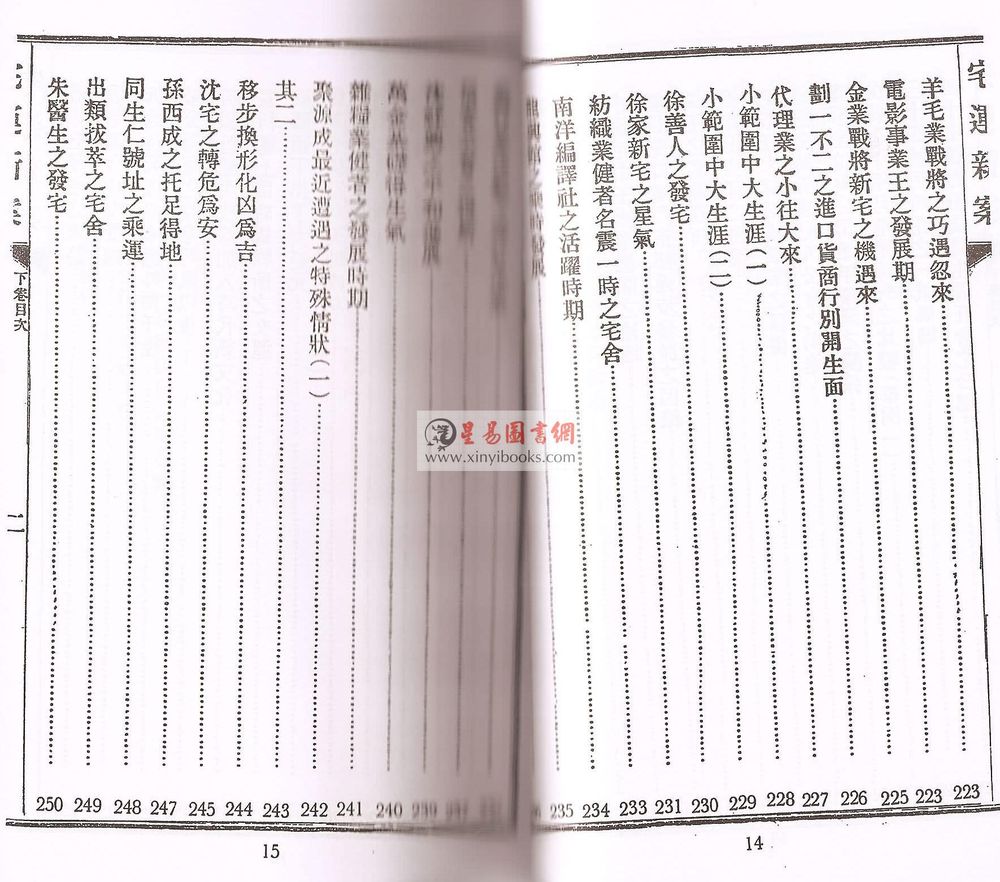 宅運新案
羊毛業戰將之巧遇忽來 223
電影事業王之發展期 223
金業戰將新宅之機遇來 225
劃一不二之進口貨商行別開生面 226
代理業之小往大來 227
小範圍中大生涯(一) 228
小範圍中大生涯(二) 229
徐善人之發宅 230
徐家新宅之星氣 231
紡織業健者名震一時之宅舍 233
南洋編譯社之活躍時期 234
235
14
萬金基礎得生氣 240
雜糧業健者之發展時期 241
聚源成最近遭遇之特殊情狀(一) 242
其二 243
移步換形化凶為吉 244
沈宅之轉危為安 245
孫西成之托足得地 247
同生仁號址之乘運 248
出類拔萃之宅舍 249
朱醫生之發宅 250
下卷目次
二
15
星易圖書網
www.xinyibooks.com